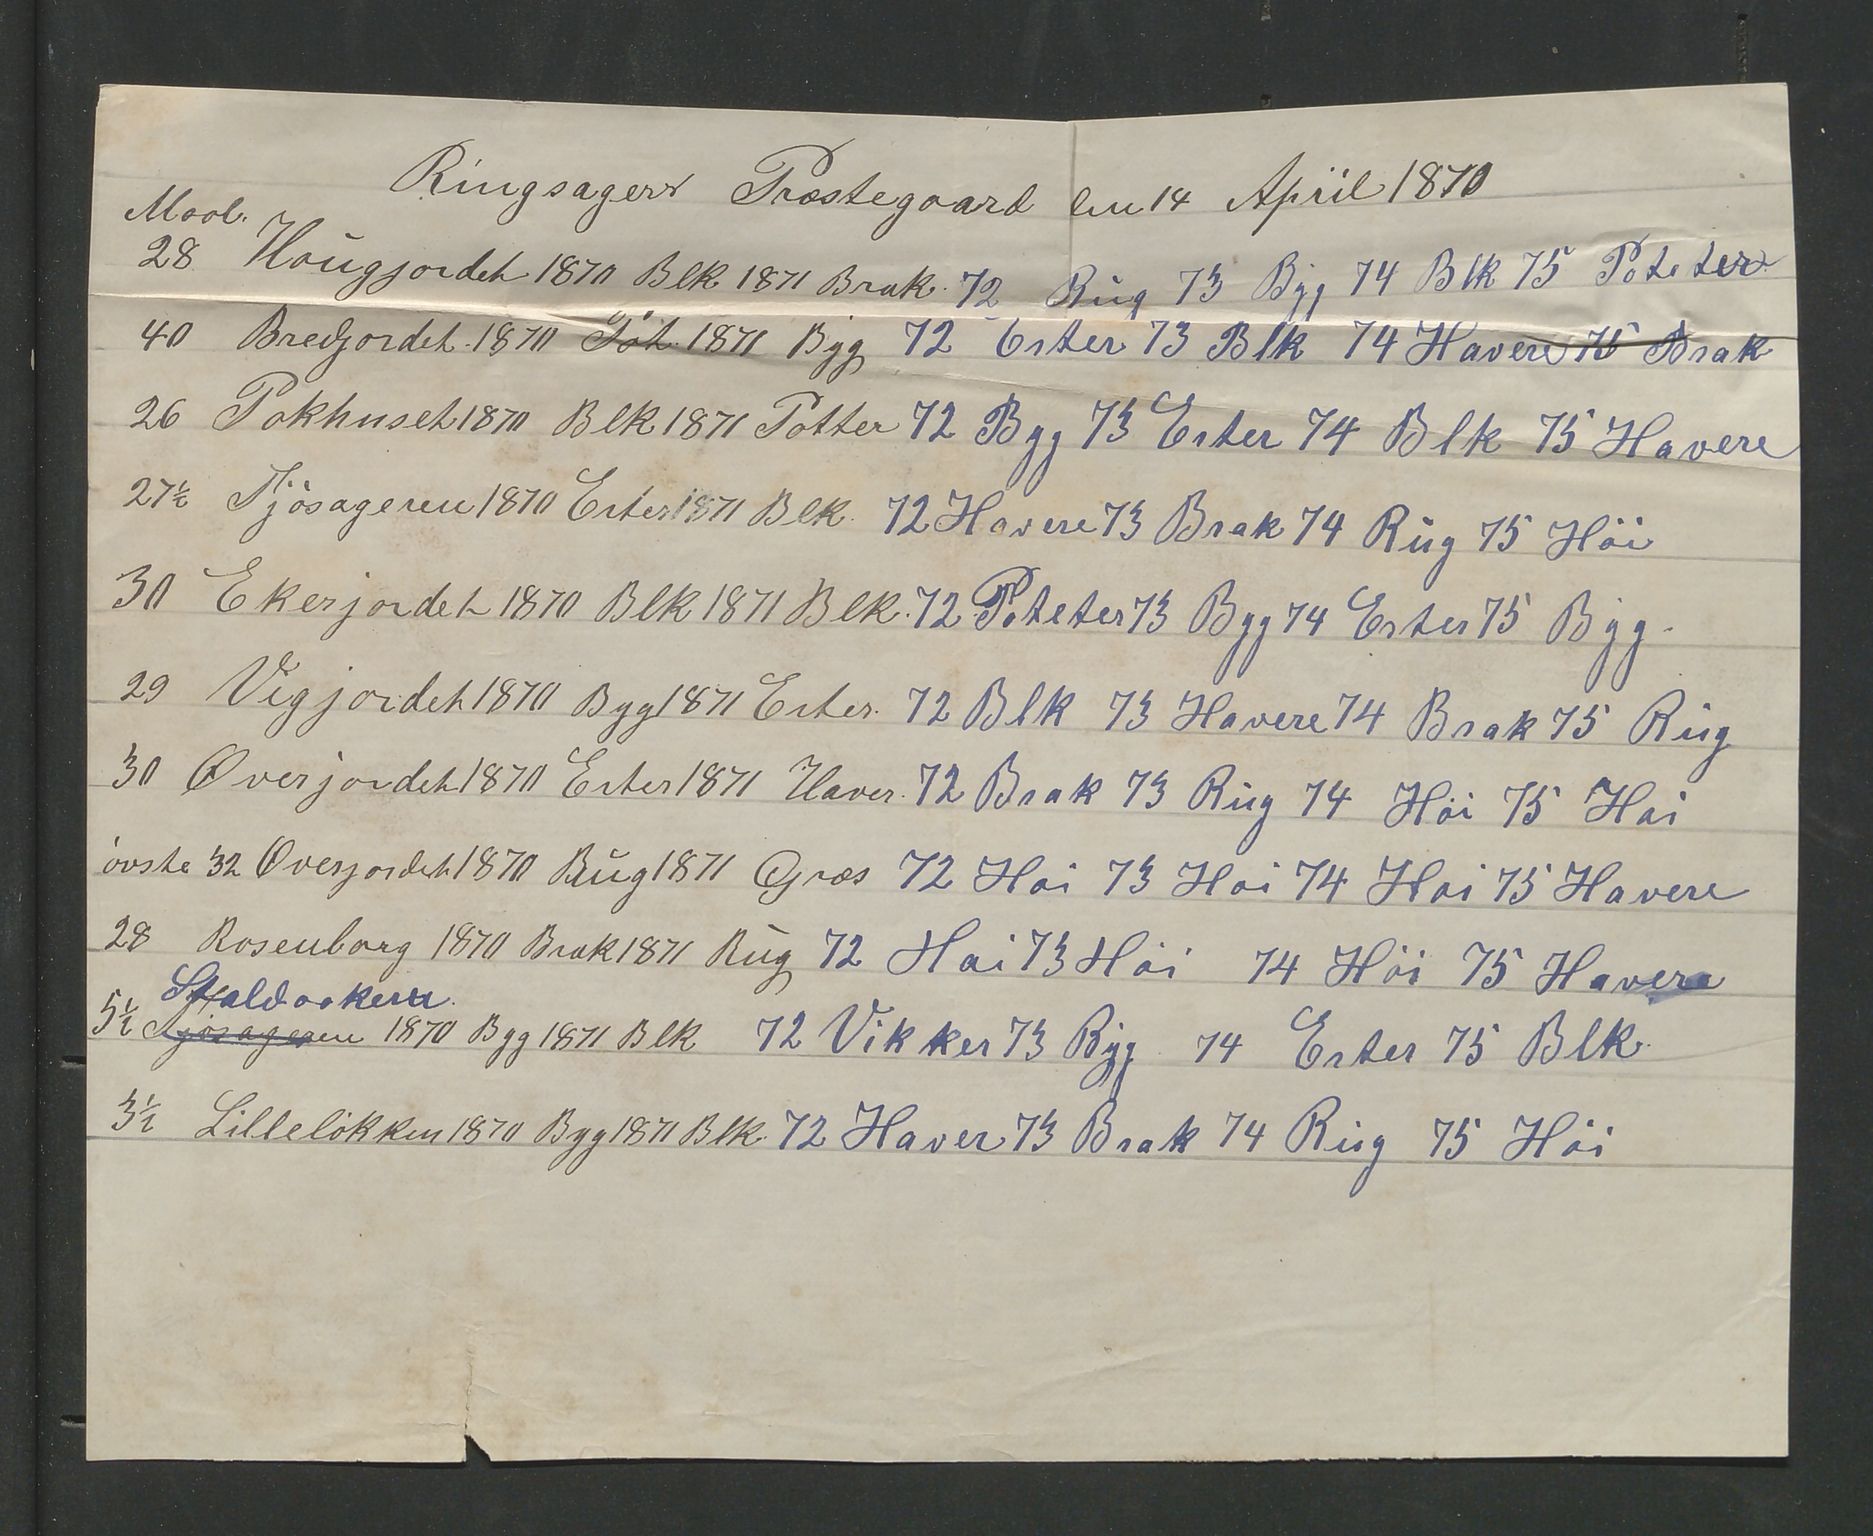 Ringsagers Præstegaard den 14 Apriil 1870
Maal.
28 Hougjordet 1870 Blk 1871 Brak. 72 Rug 73 Byg 74 Blk 75 Poteter
40 Bredjordet. 1870 Pot. 1871 Byg 72 Erter 73 Blk 74 Havere 75 Brak
26 Pakhuset 1870 Blk 1871 Potter 72 Byg 73 Erter 74 Blk 75 Havere
27½ Fjøsageren 1870 Erter 1871 Blk. 72 Havere 73 Brak 74 Rug 75 Höi
30 Ekerjordet 1870 Blk 1871 Blk. 72 Poteter 73 Byg 74 Erter 75 Byg.
29 Vigjordet 1870 Byg 1871 Erter. 72 Blk 73 Havere 74 Brak 75 Rug
30 Øverjordet 1870 Erter 1871 Haver. 72 Brak 73 Rug 74 Höi 75 Höi
övste 32 Øverjordet 1870 Rug 1871 Græs 72 Höi 73 Höi 74 Höi 75 Havere
28 Rosenborg 1870 Brak 1871 Rug 72 Höi 73 Höi 74 Höi 75 Havere
Staldakeren.
5½ Fjøsageren 1870 Byg 1871 Blk 72 Vikker 73 Byg 74 Erter 75 Blk.
3½ Lilleløkken 1870 Byg 1871 Blk. 72 Haver 73 Brak 74 Rug 75 Höi